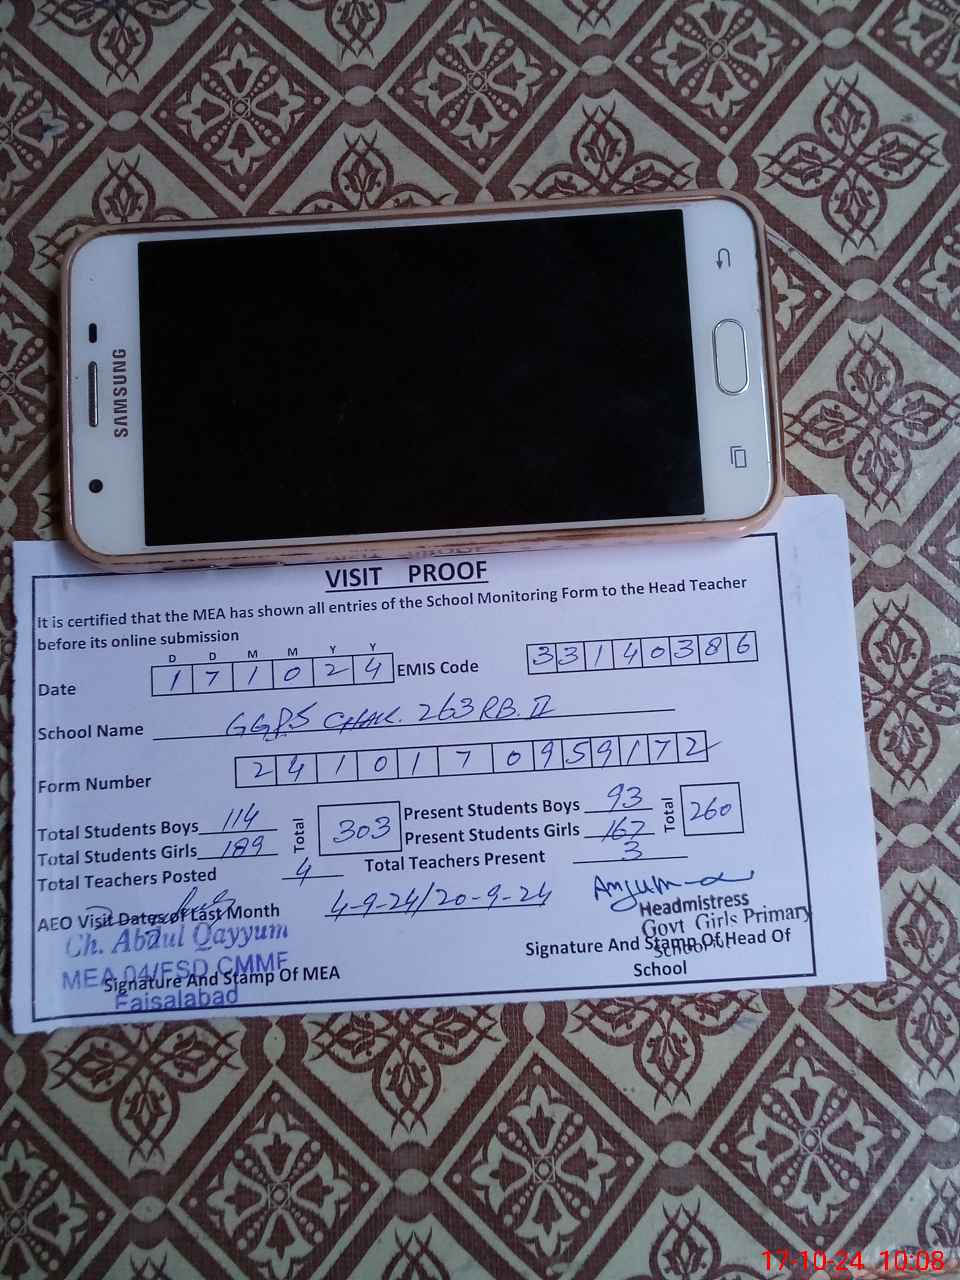 SAMSUNG
VISIT PROOF
It is certified that the MEA has shown all entries of the School Monitoring Form to the Head Teacher
before its online submission
D D M M Y Y
Date 1 7 1 0 2 4 EMIS Code 3 3 1 4 0 3 8 6
School Name GGPS CHAK. 263 RB. II
Form Number 2 4 1 0 1 7 0 9 5 9 1 7 2
Total Students Boys 114 Total 303 Present Students Boys 93 Total 260
Total Students Girls 189 Present Students Girls 167
Total Teachers Posted 4 Total Teachers Present 3
AEO Visit Dates of Last Month 4-9-24/20-9-24
Anjum
Headmistress
Govt Girls Primary
School
Ch. Abdul Qayyum
MEA 04/FSD CMMF
Faisalabad
Signature And Stamp Of MEA
Signature And Stamp Of Head Of
School
17-10-24 10:08